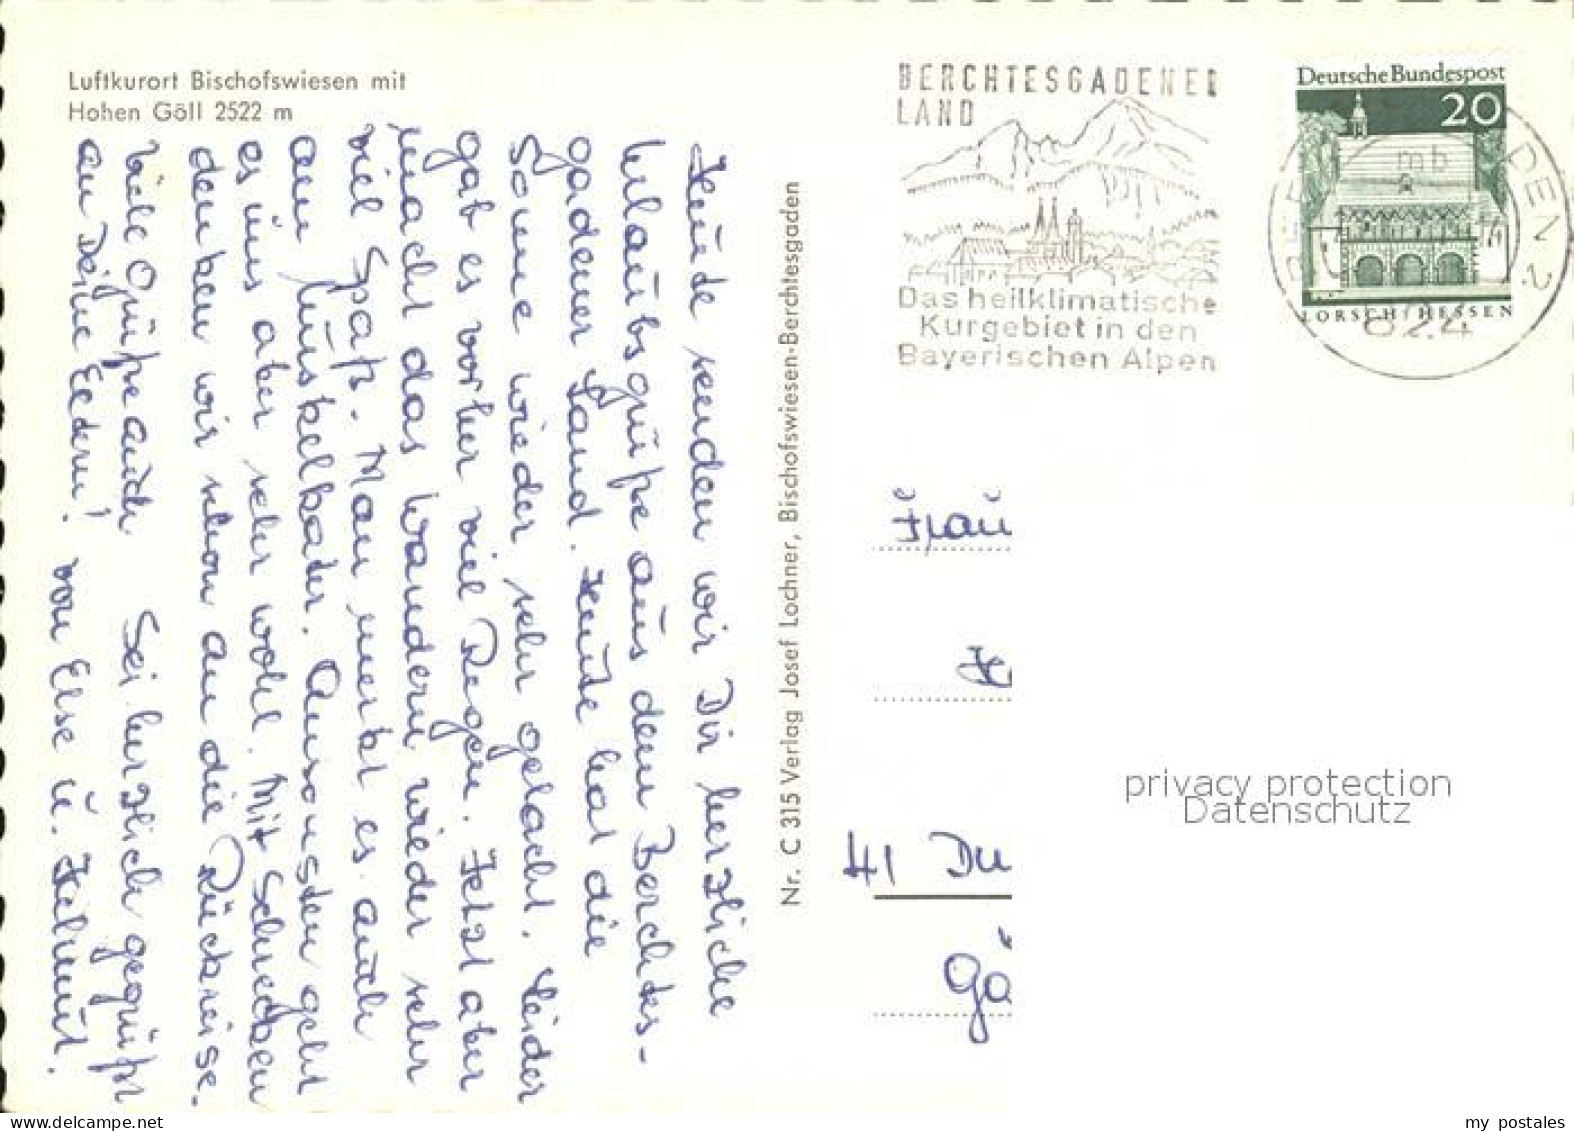 Luftkurort Bischofswiesen mit
Hohen Göll 2522 m
Heute senden wir Dir herzliche
Urlaubsgrüße aus dem Berchtes-
gadener Land. Heute hat die
Sonne wieder sehr gelacht. Leider
gab es vorher viel Regen. Jetzt aber
macht das Wandern wieder sehr
viel Spaß. Man merkt es auch
am Muskelkater. Ansonsten geht
es uns aber sehr wohl. Mit Schrecken
denken wir schon an die Rückreise.
Viele Grüße auch
an Deine Eltern! Sei herzlich gegrüßt
von Else u. Helmut.
Nr. C 315 Verlag Josef Lochner, Bischofswiesen-Berchtesgaden
BERCHTESGADENER
LAND
Das heilklimatische
Kurgebiet in den
Bayerischen Alpen
Deutsche Bundespost
20
LORSCH/HESSEN
mb
DEN 2
Frau
41 Du
privacy protection
Datenschutz
my postales